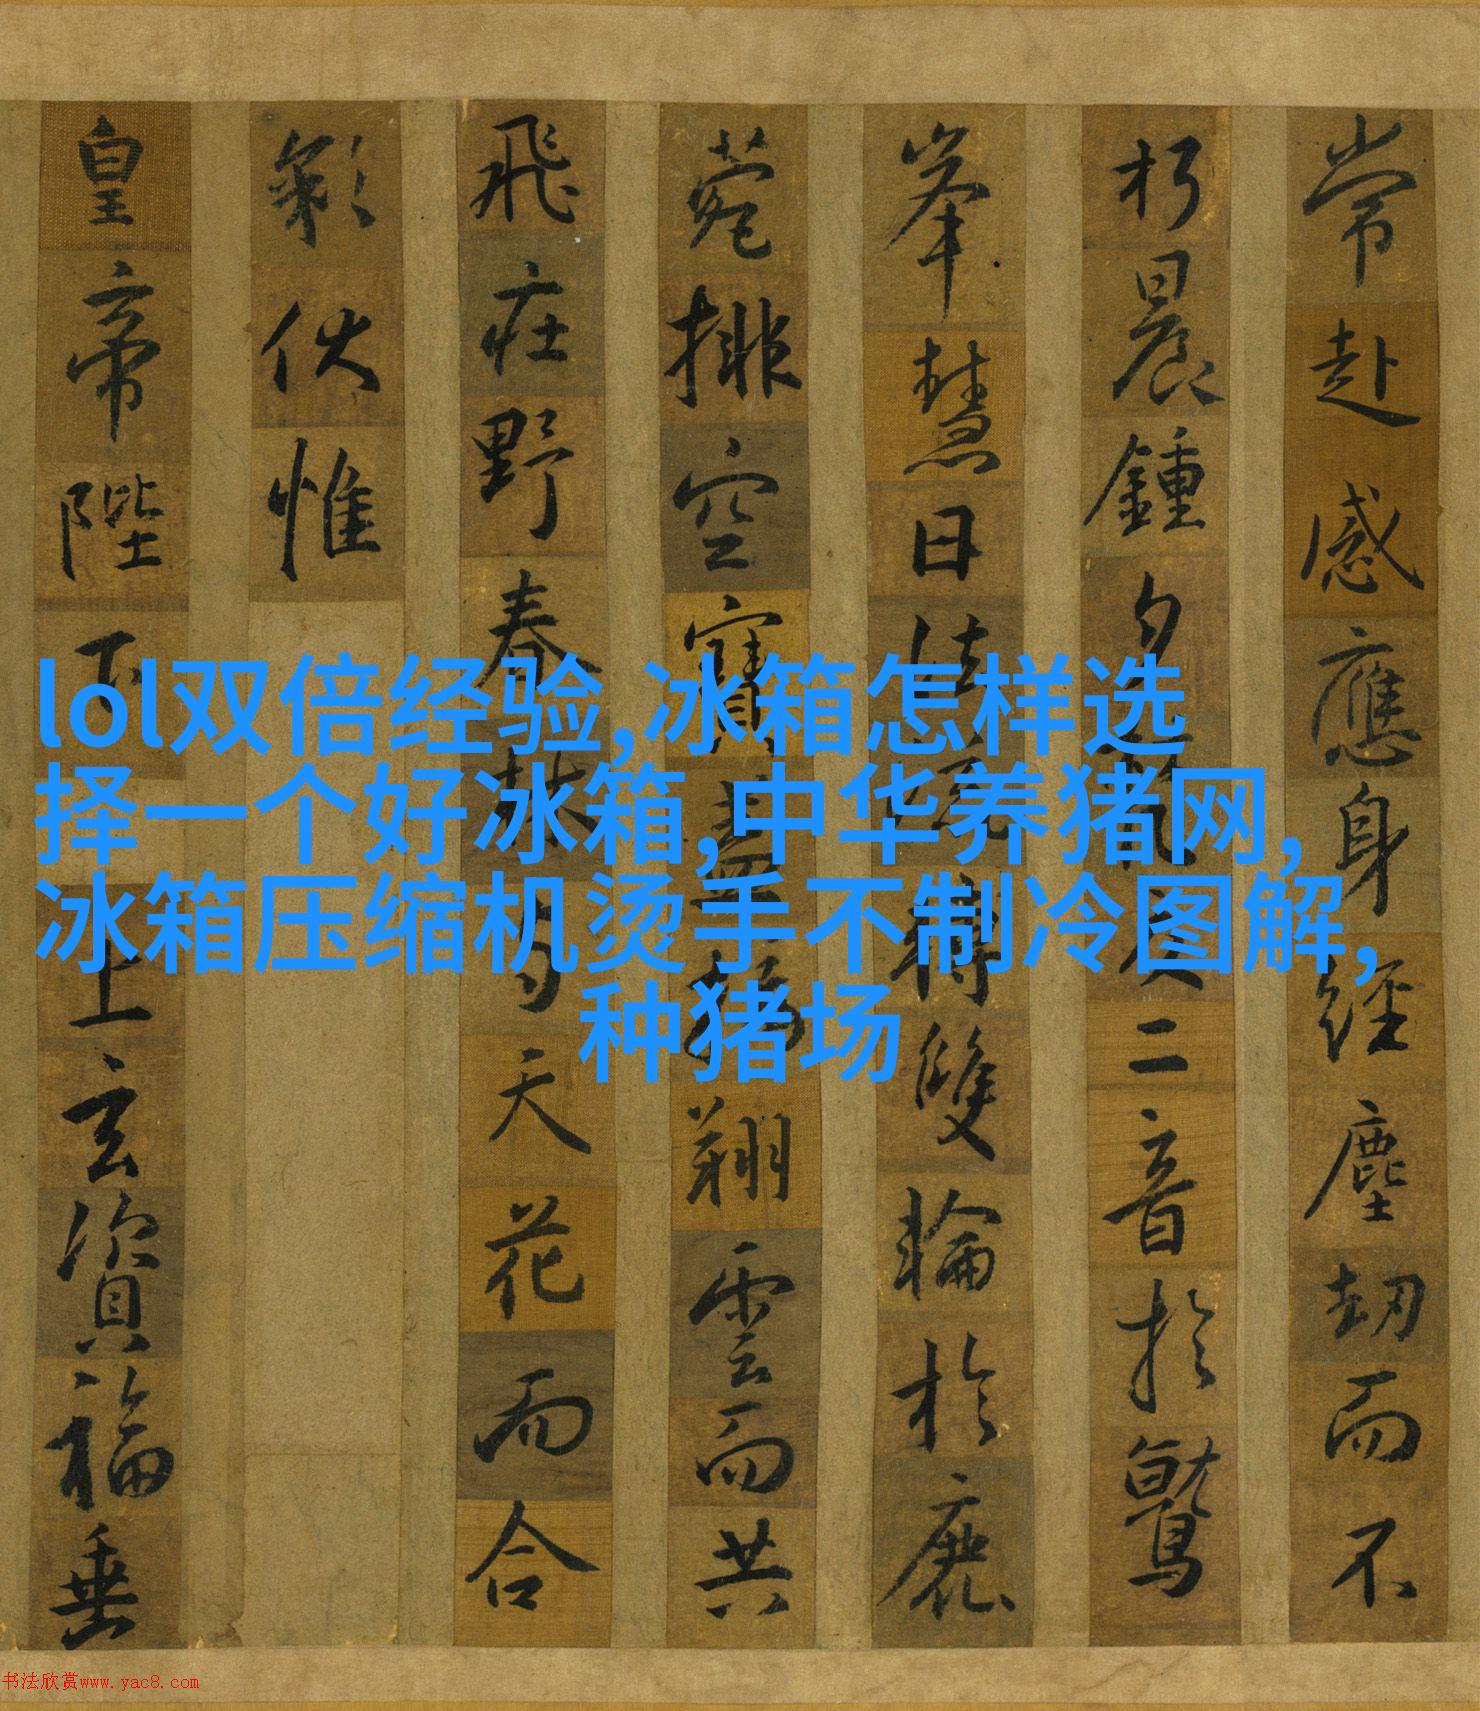 常赴感應身經塵劫而不
朽晨鍾夕梵交二音於鷲
峯慧日法流轉雙輪於鹿
菀排空寶蓋接翔雲而共
飛莊野春林与天花而合
彩伏惟
皇帝陛下上玄資福垂
lol双倍经验,冰箱怎样选
择一个好冰箱,中华养猪网,
冰箱压缩机烫手不制冷图解,
种猪场
书法欣赏www.yac8.com